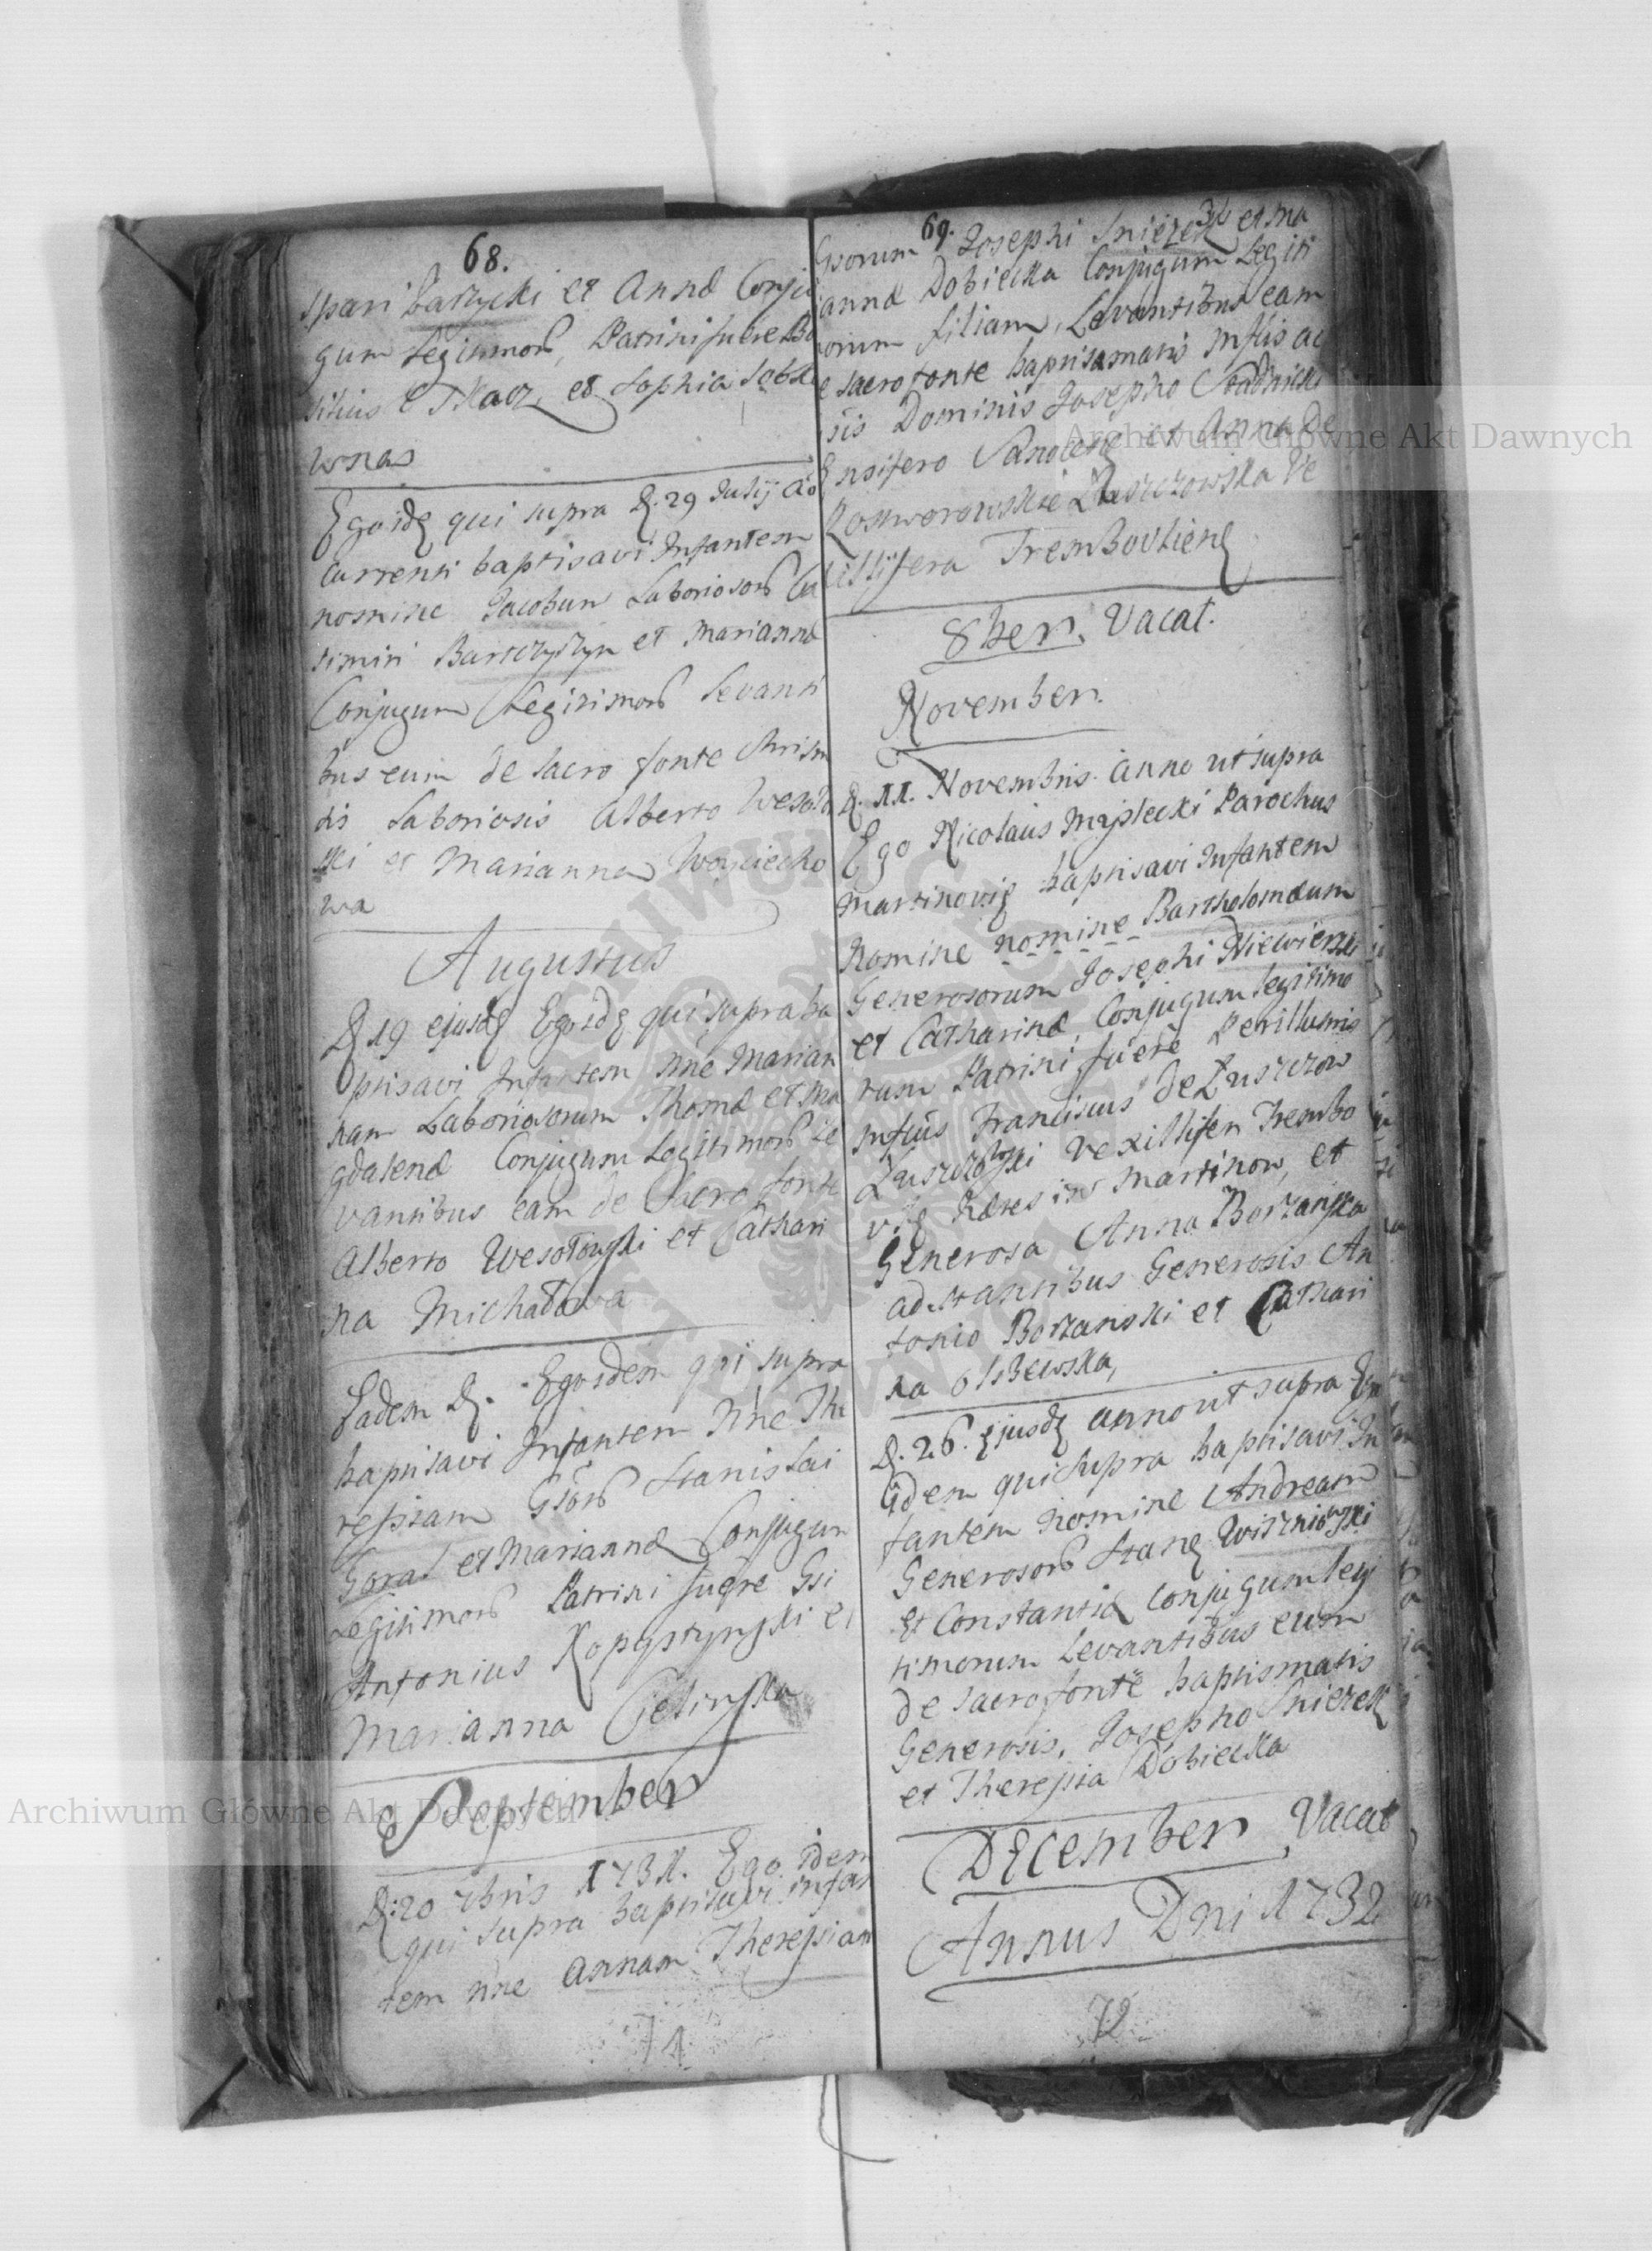 68.
spari Łatzycki et Annæ Conju
gum Legitimor, Patrini fuere Ba
silius Tkacz, et Sophia
wna
Ego idę qui supra D. 29 Julij aō
Currenti baptisavi Infantem
nomine Jacobum Laboriosor Ca
simiri Bartczyszyn et Mariannæ
Conjugum Legitimor Levanti
bus eum de Sacro fonte Chrism
dis Laboriosis Alberto Wesoło
ski et Marianna Woyciecho
wa
Augustus
D 19 ejusdę Ego idę qui supra ba
ptisavi Infantem nne Marian
nam Laboriosorum Thomæ et Ma
gdalenæ Conjugum Legitimor Le
vantibus eam de Sacro fonte
Alberto Wesołowski et Cathari
na Michałowa
Eadem D. Ego idem qui supra
baptisavi Infantem nne The
resiam Gsor Stanislai
Goral et Mariannæ Conjugum
Legitimor Patrini fuere Gsi
Antonius Kopystynski et
Marianna Celinska
September
D: 20 7bris 1731. Ego idem
qui supra baptisavi infan
tem nne Annam Theresiam
71
69.
Gsorum Josephi Sniezek et Ma
riannæ Dobiecka Conjugum Legiti
morum filiam, Levantibus eam
e sacro fonte baptismatis Mflis ac
Dominis Josepho
Ensifero Sanocen et Anna De
Łuszczowska Ve
xillifera Trembovlienę
8ber. Vacat.
November.
D. 11. Novembris anno ut supra
Ego Nicolaus Mysłecki Parochus
Martinovię baptisavi Infantem
Nomine nomine Bartholomæum
Generosorum Josephi Niewierski
et Catharinæ, Conjugum legitimo
rum Patrini fuere Perillustris
Mflus Franciscus de Łuszczow
Łuszczowski Vexillifer Trembo
vlię Hæres in Martinow, et
Generosa Anna Borzanska
adstantibus Generosis An
tonio Borzanski et Cathari
na Olszewska,
D. 26. Ejusdę anno ut supra Ego
idem qui supra baptisavi In
fantem Nomine Andream
Generosor Stanę Wiszniowski
Et Constantiæ Conjugum legi
timorum Levantibus eum
de Sacro fonte baptismatis
Generosis, Josepho Sniezek
et Theresia Dobiecka
December, Vacat
Annus Dni 1732
72
Archiwum Główne Akt Dawnych
Archiwum Główne Akt Dawnych